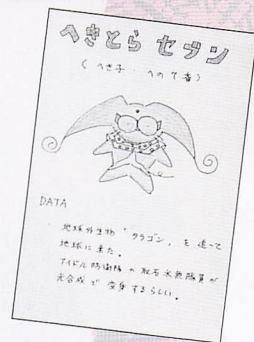 へきとら セブン
(へき子 への7着)
DATA
地球外生物「クラゴン」を追って
地球に来た。
アイドル防衛隊の 隊員が
光合成で 変身するらしい。